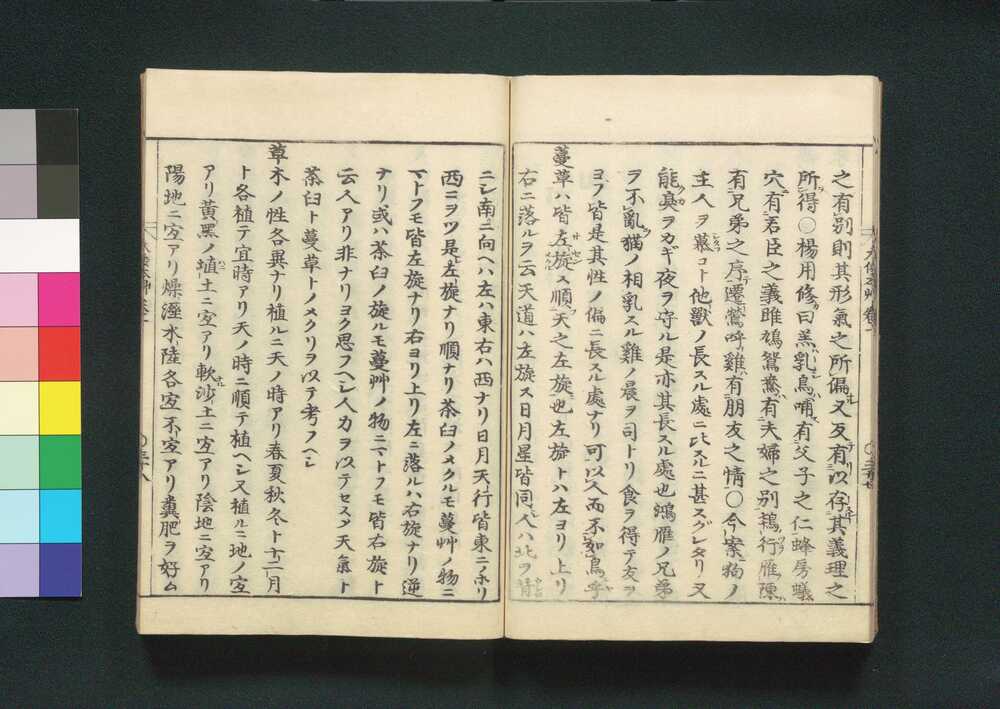 之有別則其形氣之所偏又反有以存其義理之
所得○楊用修曰羔乳烏哺有父子之仁蜂房蟻
穴有君臣之義雎鳩鴛鴦有夫婦之別鶺行雁陳
有兄弟之序遷鶯呼雞有朋友之情○今案狗ノ
主人ヲ慕コト他獸ノ長スル處ニ比スルニ甚スグレタリ又
能真ヲカギ夜ヲ守ル是亦其長スル處也鴻雁ノ兄弟
ヲ不亂猫ノ相乳スル雞ノ晨ヲ司トリ食ヲ得テ友ヲ
ヨフ皆是其性ノ偏ニ長スル處ナリ可以人而不如鳥乎
蔓草ハ皆左旋ス順天之左旋也左旋トハ左ヨリ上リ
右ニ落ルヲ云天道ハ左旋ス日月星皆同人ハ北ヲ背
ニシ南ニ向ヘハ左ハ東右ハ西ナリ日月天行皆東ニノホリ
西ニヲツ是左旋ナリ順ナリ茶臼ノメクルモ蔓艸ノ物ニ
マトフモ皆左旋ナリ右ヨリ上リ左ニ落ルハ右旋ナリ逆
ナリ或ハ茶臼ノ旋ルモ蔓艸ノ物ニマトフモ皆右旋ト
云人アリ非ナリヨク思フヘシ人力ヲ以テセスメ天氣ト
茶臼ト蔓草トノメクリヲ以テ考フヘシ
草木ノ性各異ナリ植ルニ天ノ時アリ春夏秋冬ト十二月
ト各植テ宜時アリ天ノ時ニ順テ植ヘシ又植ルニ地ノ宜
アリ黃黑ノ埴土ニ宜アリ軟沙土ニ宜アリ陰地ニ宜アリ
陽地ニ宜アリ燥溼水陸各宜不宜アリ糞肥ヲ好ム